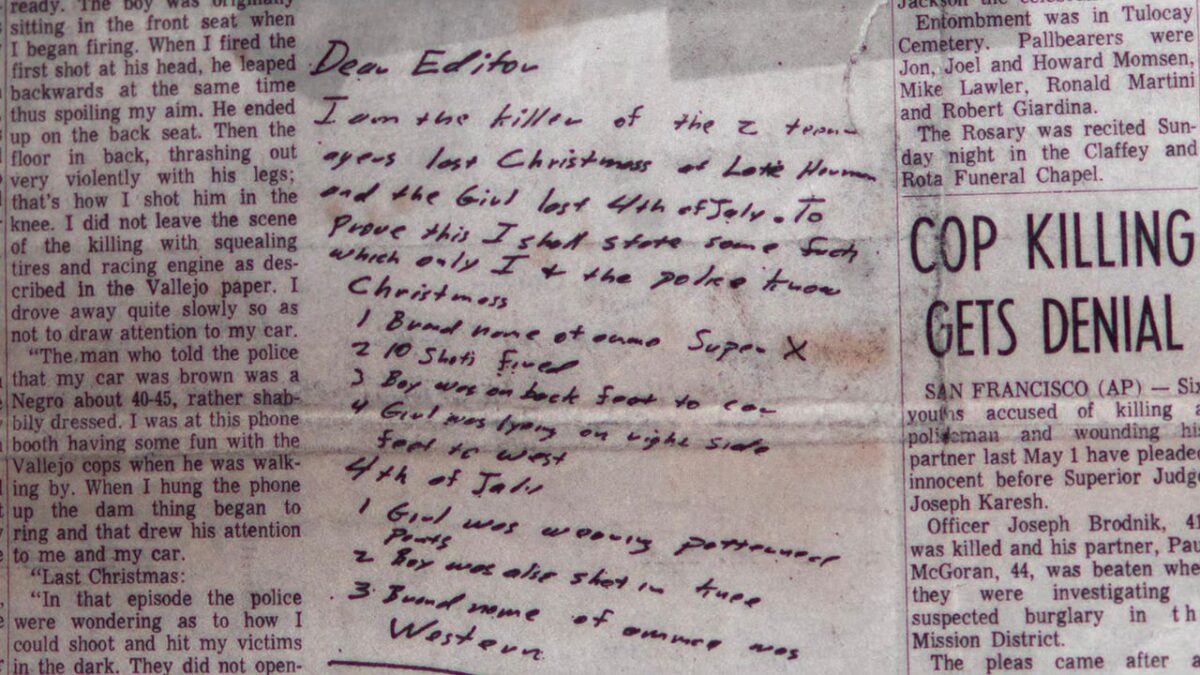 ready. The boy was originally
sitting in the front seat when
I began firing. When I fired the
first shot at his head, he leaped
backwards at the same time
thus spoiling my aim. He ended
up on the back seat. Then the
floor in back, thrashing out
very violently with his legs;
that's how I shot him in the
knee. I did not leave the scene
of the killing with squealing
tires and racing engine as des-
cribed in the Vallejo paper. I
drove away quite slowly so as
not to draw attention to my car.
"The man who told the police
that my car was brown was a
Negro about 40-45, rather shab-
bily dressed. I was at this phone
booth having some fun with the
Vallejo cops when he was walk-
ing by. When I hung the phone
up the dam thing began to
ring and that drew his attention
to me and my car.
"Last Christmas:
"In that episode the police
were wondering as to how I
could shoot and hit my victims
in the dark. They did not open-
Dear Editor
I am the killer of the 2 teen
agers last Christmass at Lake Herman
and the Girl last 4th of July. To
prove this I shall state some facts
which only I + the police know
Christmass
1 Brand name of ammo Super X
2 10 Shots fired
3 Boy was on back feet to car
4 Girl was lyeing on right side
feet to west
4th of July
1 Girl was wearing patterned
pants
2 Boy was also shot in knee
3 Brand name of ammo was
Western
Entombment was in Tulocay
Cemetery. Pallbearers were
Jon, Joel and Howard Momsen,
Mike Lawler, Ronald Martini
and Robert Giardina.
The Rosary was recited Sun-
day night in the Claffey and
Rota Funeral Chapel.
COP KILLING
GETS DENIAL
SAN FRANCISCO (AP) — Six
youths accused of killing a
policeman and wounding his
partner last May 1 have pleaded
innocent before Superior Judge
Joseph Karesh.
Officer Joseph Brodnik, 41
was killed and his partner, Pau
McGoran, 44, was beaten whe
they were investigating
suspected burglary in th
Mission District.
The pleas came after a